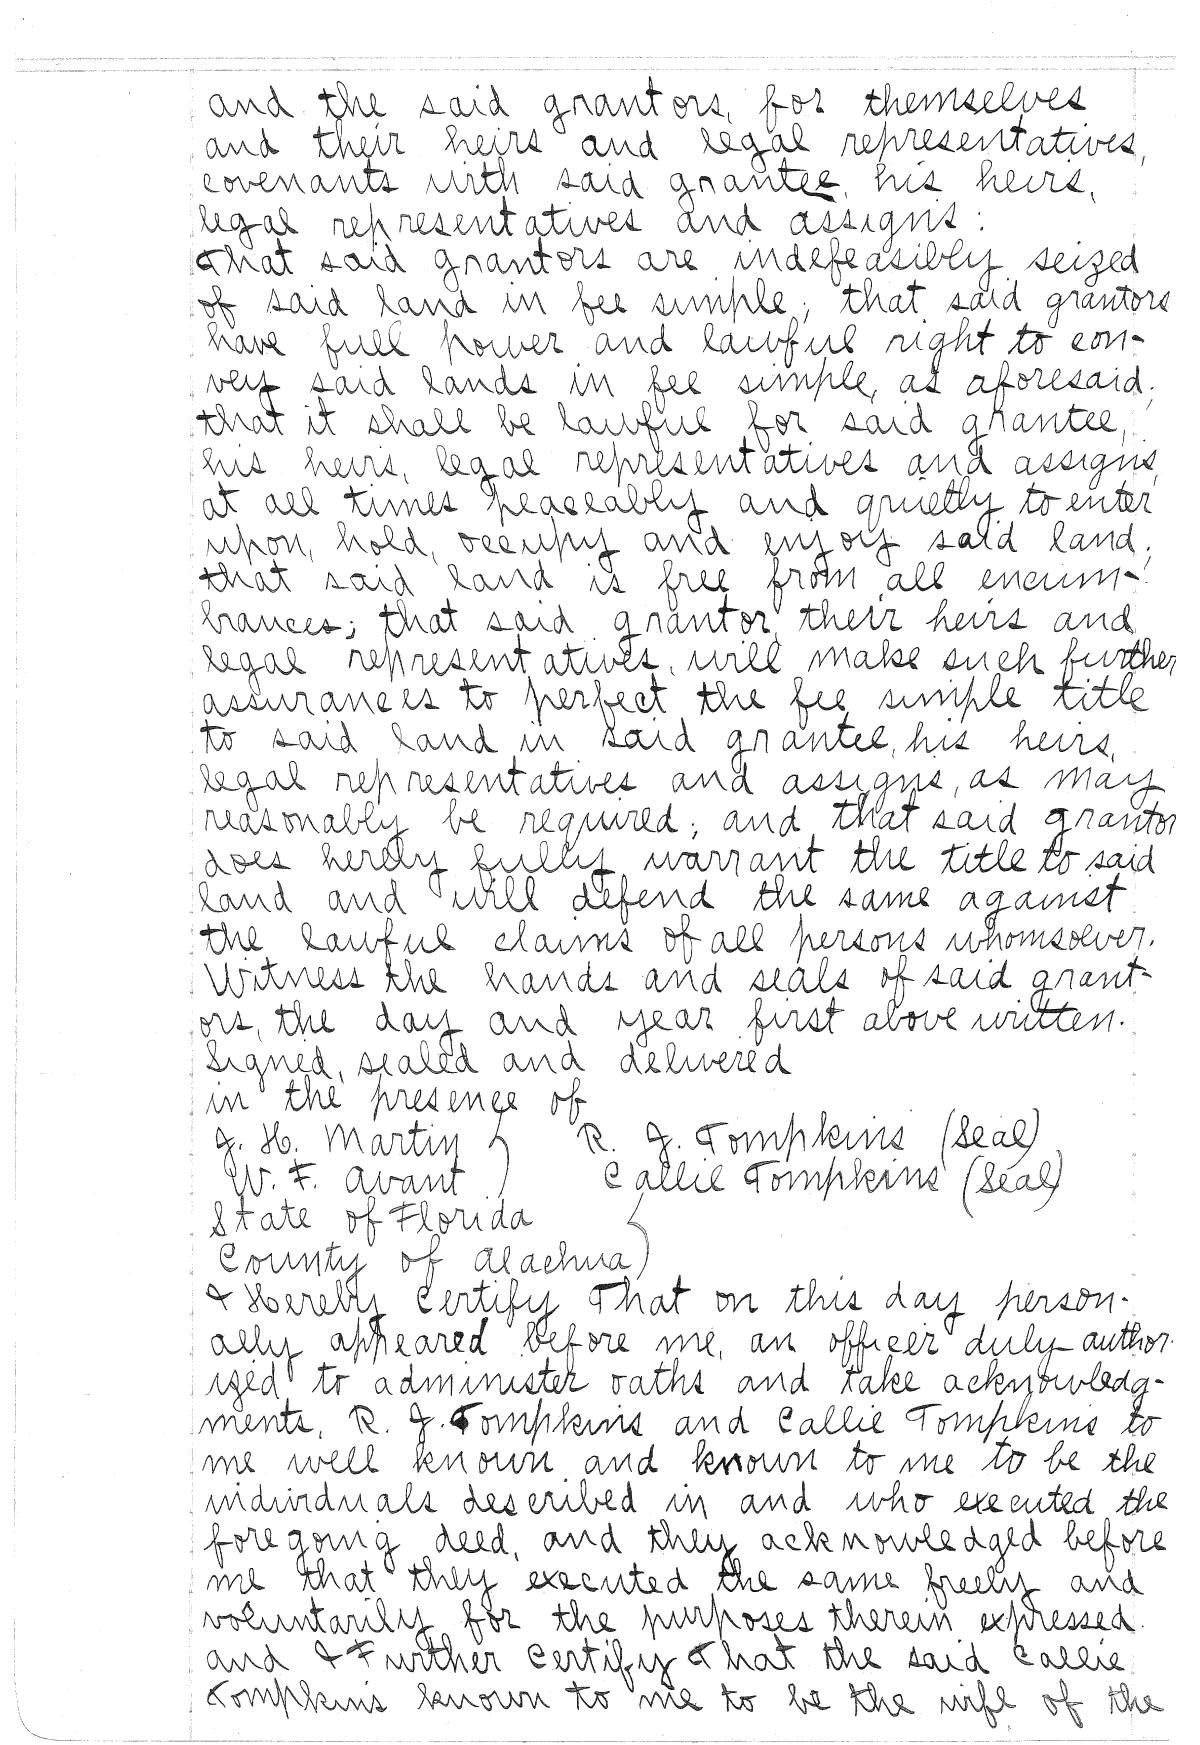 and the said grantors, for themselves
and their heirs and legal representatives,
covenants with said grantee, his heirs,
legal representatives and assigns:
That said grantors are indefeasibly seized
of said land in fee simple; that said grantors
have full power and lawful right to con-
vey said lands in fee simple, as aforesaid;
that it shall be lawful for said grantee,
his heirs, legal representatives and assigns,
at all times peaceably and quietly to enter
upon, hold, occupy and enjoy said land;
that said land is free from all encum-
brances; that said grantor, their heirs and
legal representatives, will make such further
assurances to perfect the fee simple title
to said land in said grantee, his heirs,
legal representatives and assigns, as may
reasonably be required; and that said grantor
does hereby fully warrant the title to said
land and will defend the same against
the lawful claims of all persons whomsoever.
Witness the hands and seals of said grant-
ors, the day and year first above written.
Signed, sealed and delivered
in the presence of
J. H. Martin ) R. J. Tompkins (Seal)
W. F. Avant ) Callie Tompkins (Seal)
State of Florida
County of Alachua)
I Hereby Certify That on this day person-
ally appeared before me, an officer duly author-
ized to administer oaths and take acknowledg-
ments, R. J. Tompkins and Callie Tompkins to
me well known and known to me to be the
individuals described in and who executed the
foregoing deed, and they acknowledged before
me that they executed the same freely and
voluntarily for the purposes therein expressed.
and I Further Certify That the said Callie
Tompkins known to me to be the wife of the